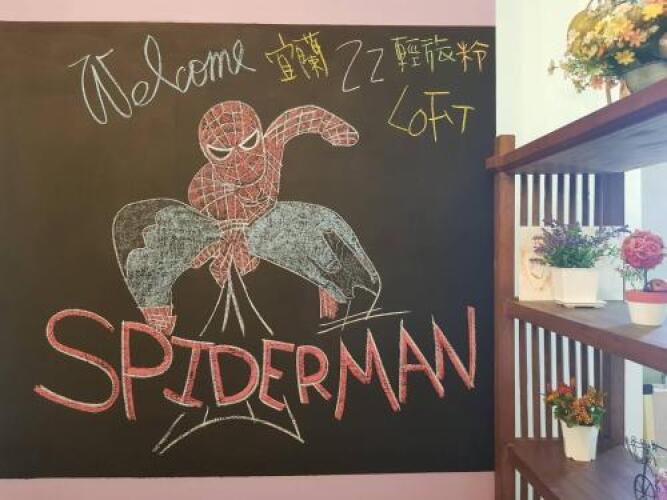 Welcome 宜蘭 ZZ 輕旅粉
LOFT
SPIDERMAN